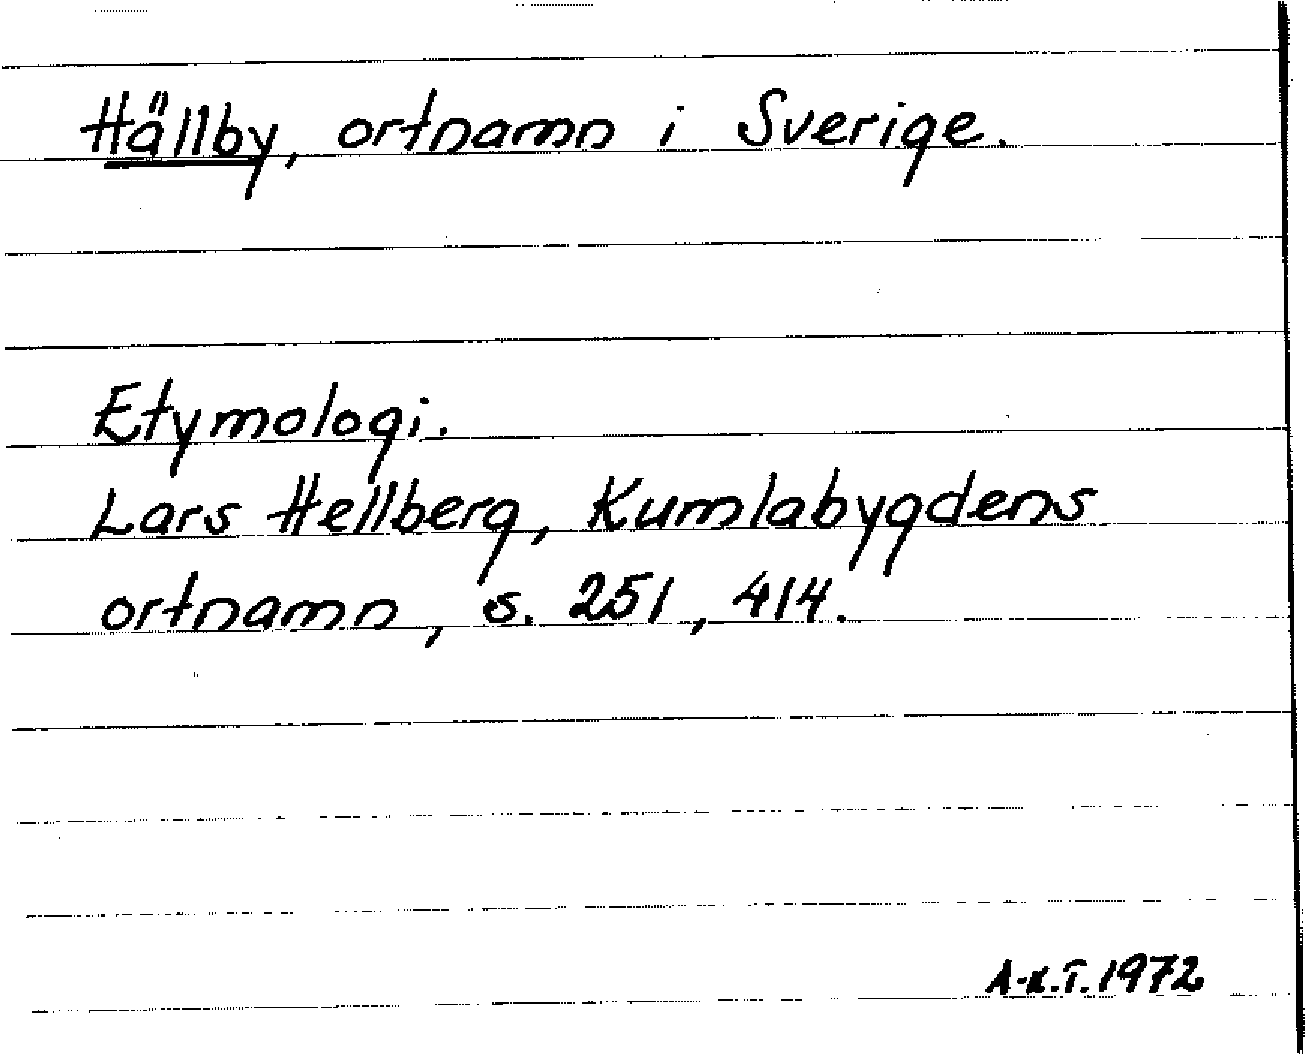 Hällby, ortnamn i Sverige.
Etymologi.
Lars Hellberg, Kumlabygdens
ortnamn, s. 251, 414.
A-K.T. 1972